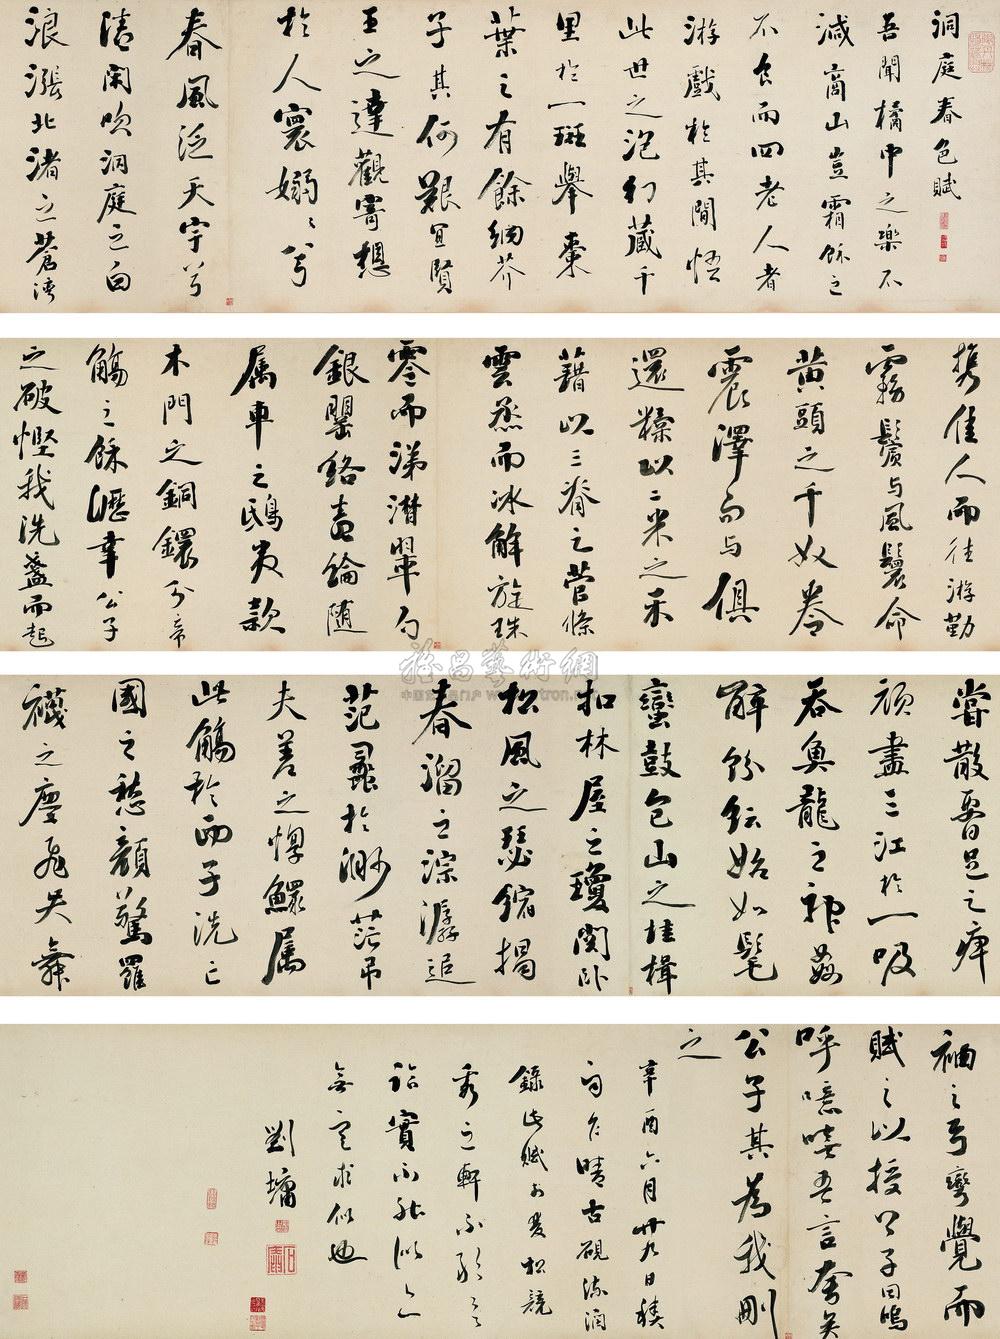 洞庭春色賦
吾聞橘中之樂不
減商山豈霜餘之
不食而四老人者
游戲於其間悟
此世之泡幻藏千
里於一班舉棗
葉之有餘納芥
子其何艱宜賢
王之達觀寄想
於人寰嫋嫋兮
春風泛天宇兮
清閑吹洞庭之白
浪漲北渚之蒼灣
携佳人而往游勤
霧鬢與風鬟命
黃頭之千奴卷
震澤而與俱
還糅以二米之禾
藉以三脊之菅條
雲烝而冰解旋珠
零而涕潸翠勺
銀罌絡青綸随
属車之鴟夷款
木門之銅鐶分帝
觴之餘瀝幸公子
之破慳我洗盞而起
嘗散腰足之痺
頑盡三江於一吸
吞魚龍之神姦
醉紛紜始如髦
蠻鼓包山之桂楫
扣林屋之瓊関卧
松風之瑟縮揭
春溜之淙潺追
范蠡於渺茫吊
夫差之惸鰥属
此觴於西子洗亡
國之愁顏驚羅
襪之塵飛失舞
袖之弓彎覺而
賦之以授公子曰嗚
呼噫嘻吾言夸矣
公子其為我刪
之
辛酉六月廿九日積
雨乍晴古硯流潤
錄此賦於愛松競
秀之軒不形之
詒實不能似亦
無意求似也
劉墉